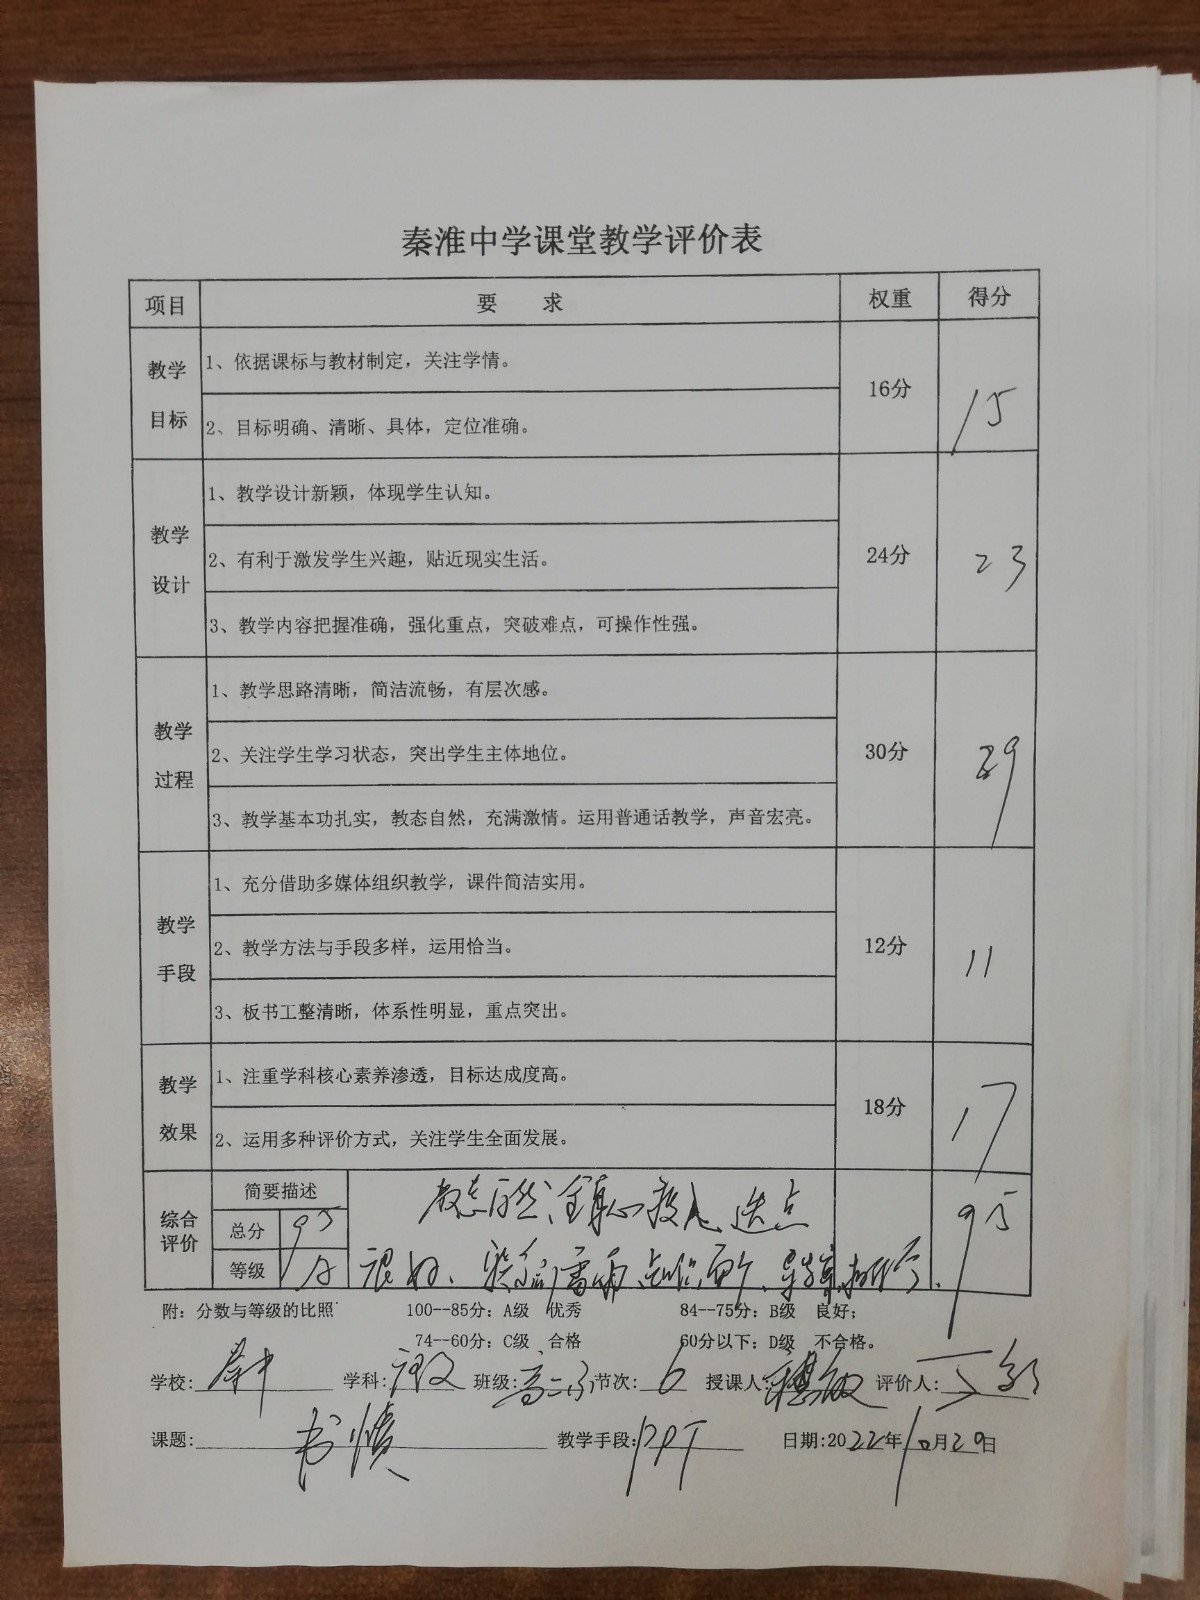 秦淮中学课堂教学评价表
项目 要 求 权重 得分
教学目标 16分 15
1、依据课标与教材制定，关注学情。
2、目标明确、清晰、具体，定位准确。
教学设计 24分 23
1、教学设计新颖，体现学生认知。
2、有利于激发学生兴趣，贴近现实生活。
3、教学内容把握准确，强化重点，突破难点，可操作性强。
教学过程 30分 29
1、教学思路清晰，简洁流畅，有层次感。
2、关注学生学习状态，突出学生主体地位。
3、教学基本功扎实，教态自然，充满激情。运用普通话教学，声音宏亮。
教学手段 12分 11
1、充分借助多媒体组织教学，课件简洁实用。
2、教学方法与手段多样，运用恰当。
3、板书工整清晰，体系性明显，重点突出。
教学效果 18分 17
1、注重学科核心素养渗透，目标达成度高。
2、运用多种评价方式，关注学生全面发展。
综合评价 简要描述 教态自然、 95
总分 95
等级 A
附：分数与等级的比照 100--85分：A级 优秀 84--75分：B级 良好；
74--60分：C级 合格 60分以下：D级 不合格。
学校：秦中 学科：语文 班级：高二 节次：6 授课人：敏 评价人：
课题：书愤 教学手段：PPT 日期:2022年10月29日